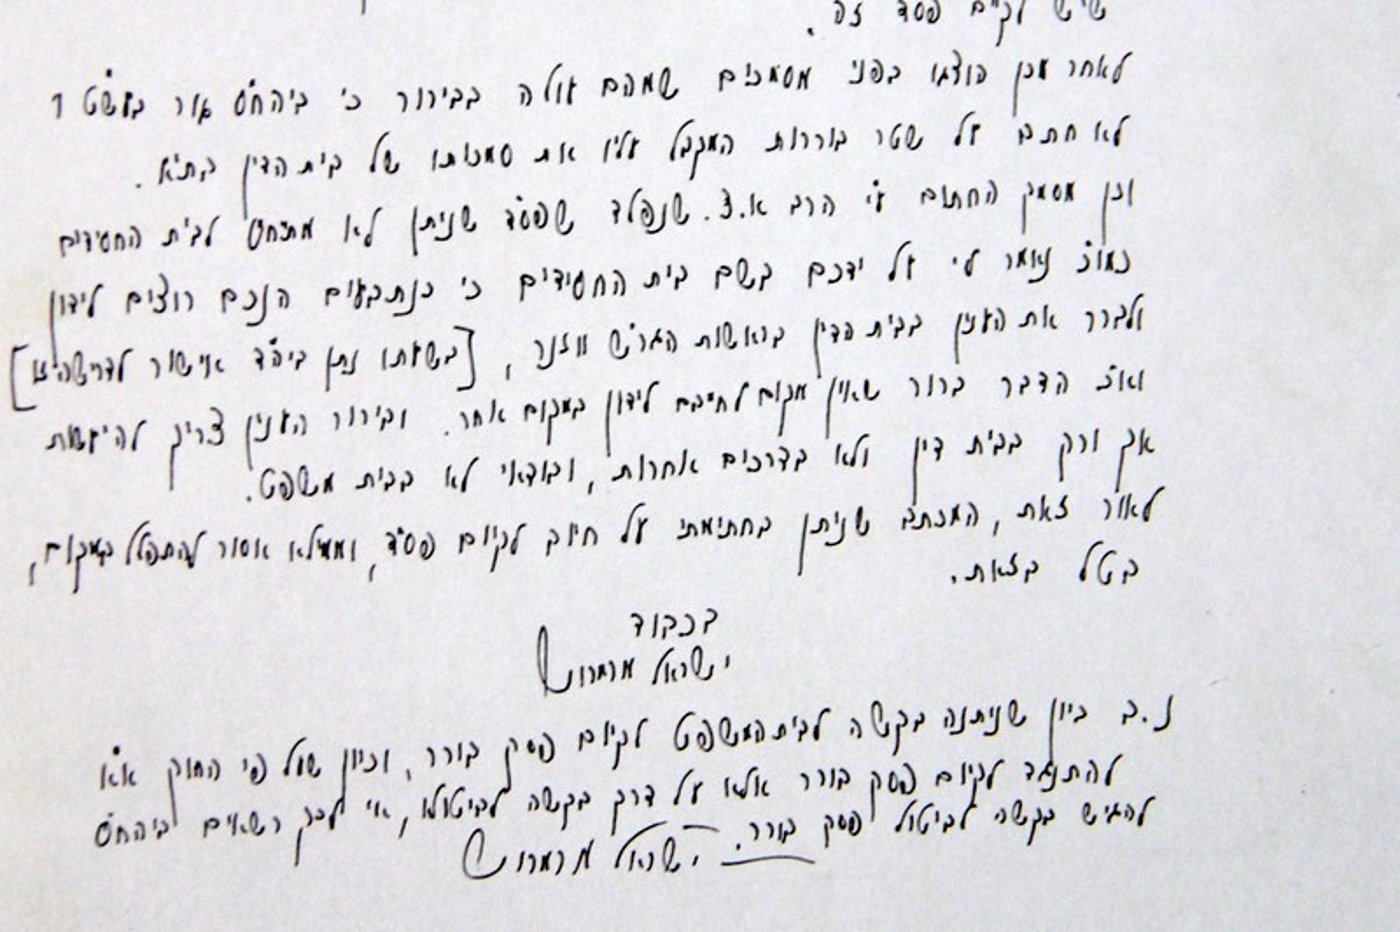 שיש לקיים פסד זה.
לאחר מכן הוצגו בפני מסמכים שמהם עולה בבירור כי ביהח"ס גור בעשט"ו
לא חתם על שטר בוררות המקבל עליו את סמכותו של בית הדין בת"א.
וכן מסמך החתום ע"י הרב א.צ. שנפלד שפס"ד שניתן לא מתיחס לבית החסידים
כמו"כ נאמר לי על ידכם בשם בית החסידים כי כנתבעים הנכם רוצים לידון
ולברר את הענין בבית הדין בראשות הגר"ש ווזנר, [בשעתו נתן ביה"ד אישור לדרישה זו]
וא"כ הדבר ברור שאין מקום לחייבם לידון במקום אחר. ובירור הענין צריך להיעשות
אך ורק בבית דין ולא בדרכים אחרות, ובודאי לא בבית משפט.
לאור זאת, המכתב שניתן בחתימתי על חיוב לקיום פס"ד, וממילא אסור להתפלל במקום,
בטל בזאת.
בכבוד
ישראל מרמרוש
נ.ב כיון שניתנה בקשה לבית המשפט לקיום פסק בורר, וכיון שעל פי החוק א"א
להתנגד לקיום פסק בורר אלא על דרך בקשה לביטולו, אי לכך רשאים ביהח"ס
להגיש בקשה לביטול פסק בורר. ישראל מרמרוש